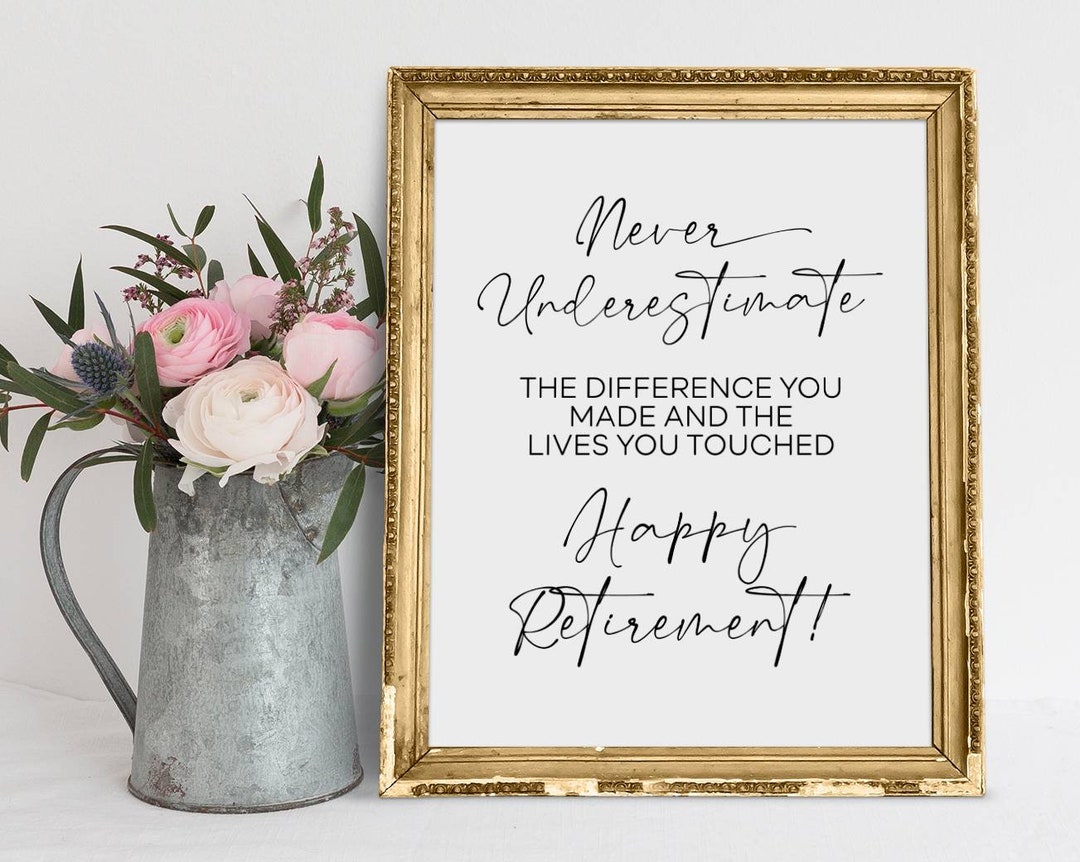 Never
Underestimate
THE DIFFERENCE YOU
MADE AND THE
LIVES YOU TOUCHED
Happy
Retirement!